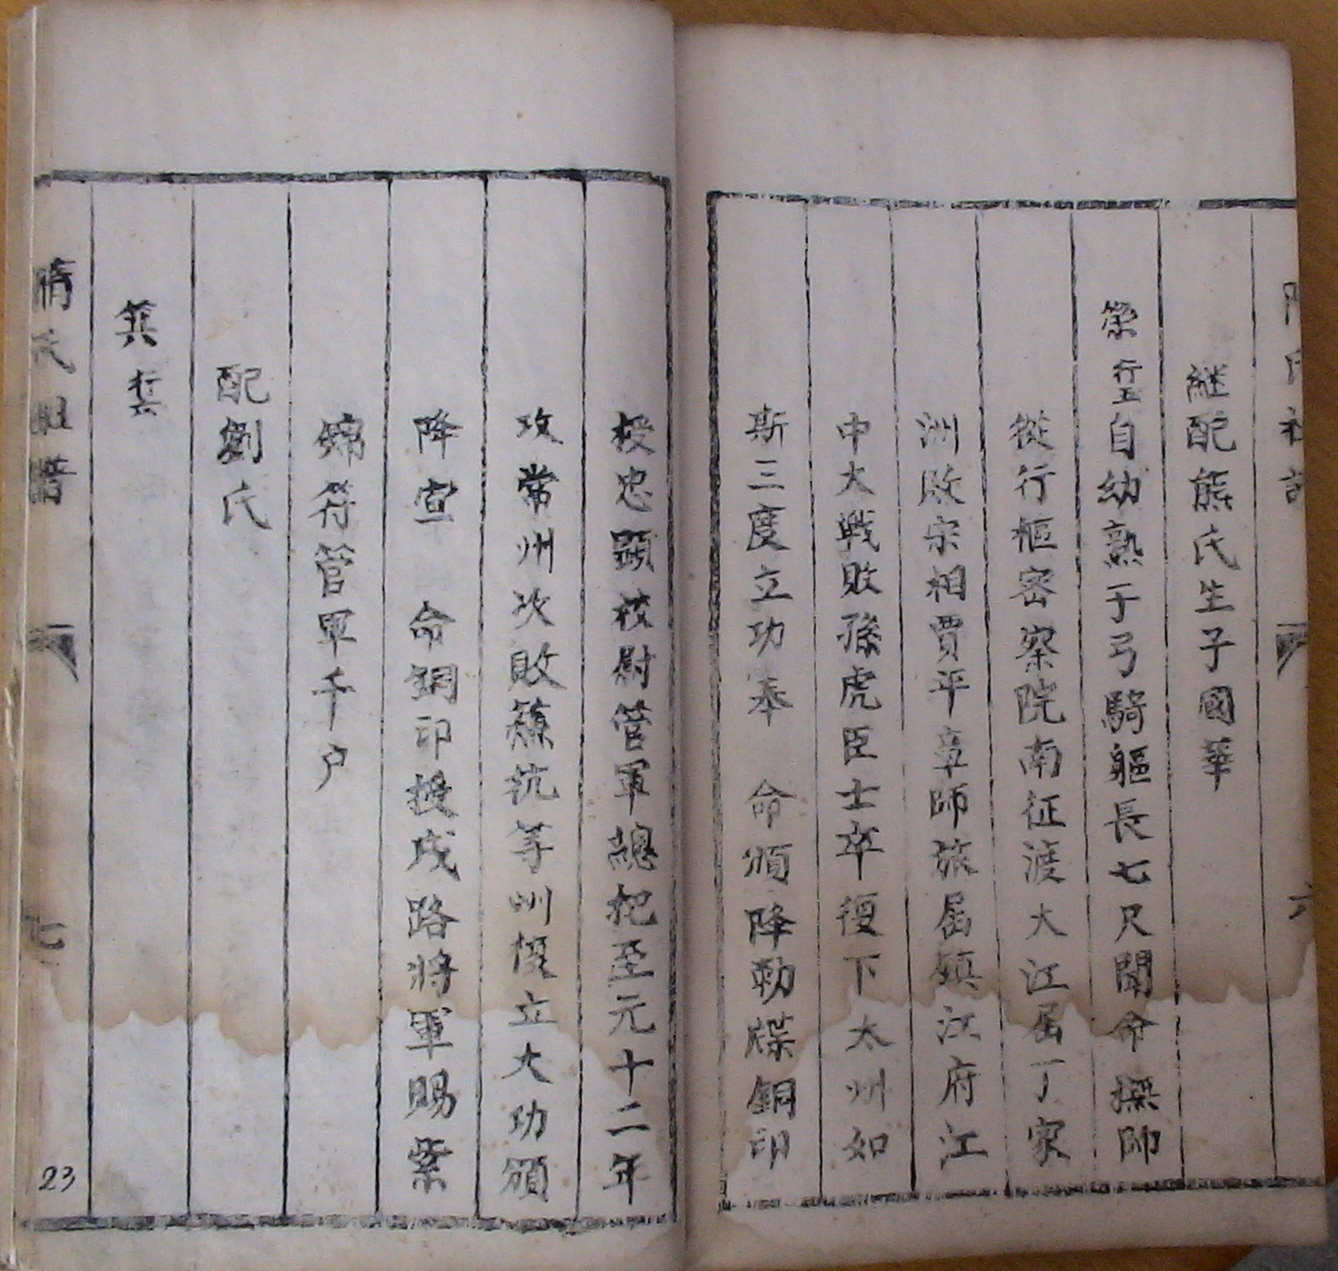 继配熊氏生子國華
榮行五自幼熟于弓騎軀長七尺聞命撫帥
從行樞密察院南征渡大江屆丁家
洲敗宋相賈平章師旅屆鎮江府江
中大戰敗孫虎臣士卒復下太州如
斯三度立功奉 命頒降勅牒銅印
授忠顯校尉管軍總把至元十二年
攻常州次敗蘇沆等州慢立大功頒
降宣 命銅印授戍路將軍賜紫
錦符管軍千户
配劉氏
箕行六
隋氏祖譜 七
23